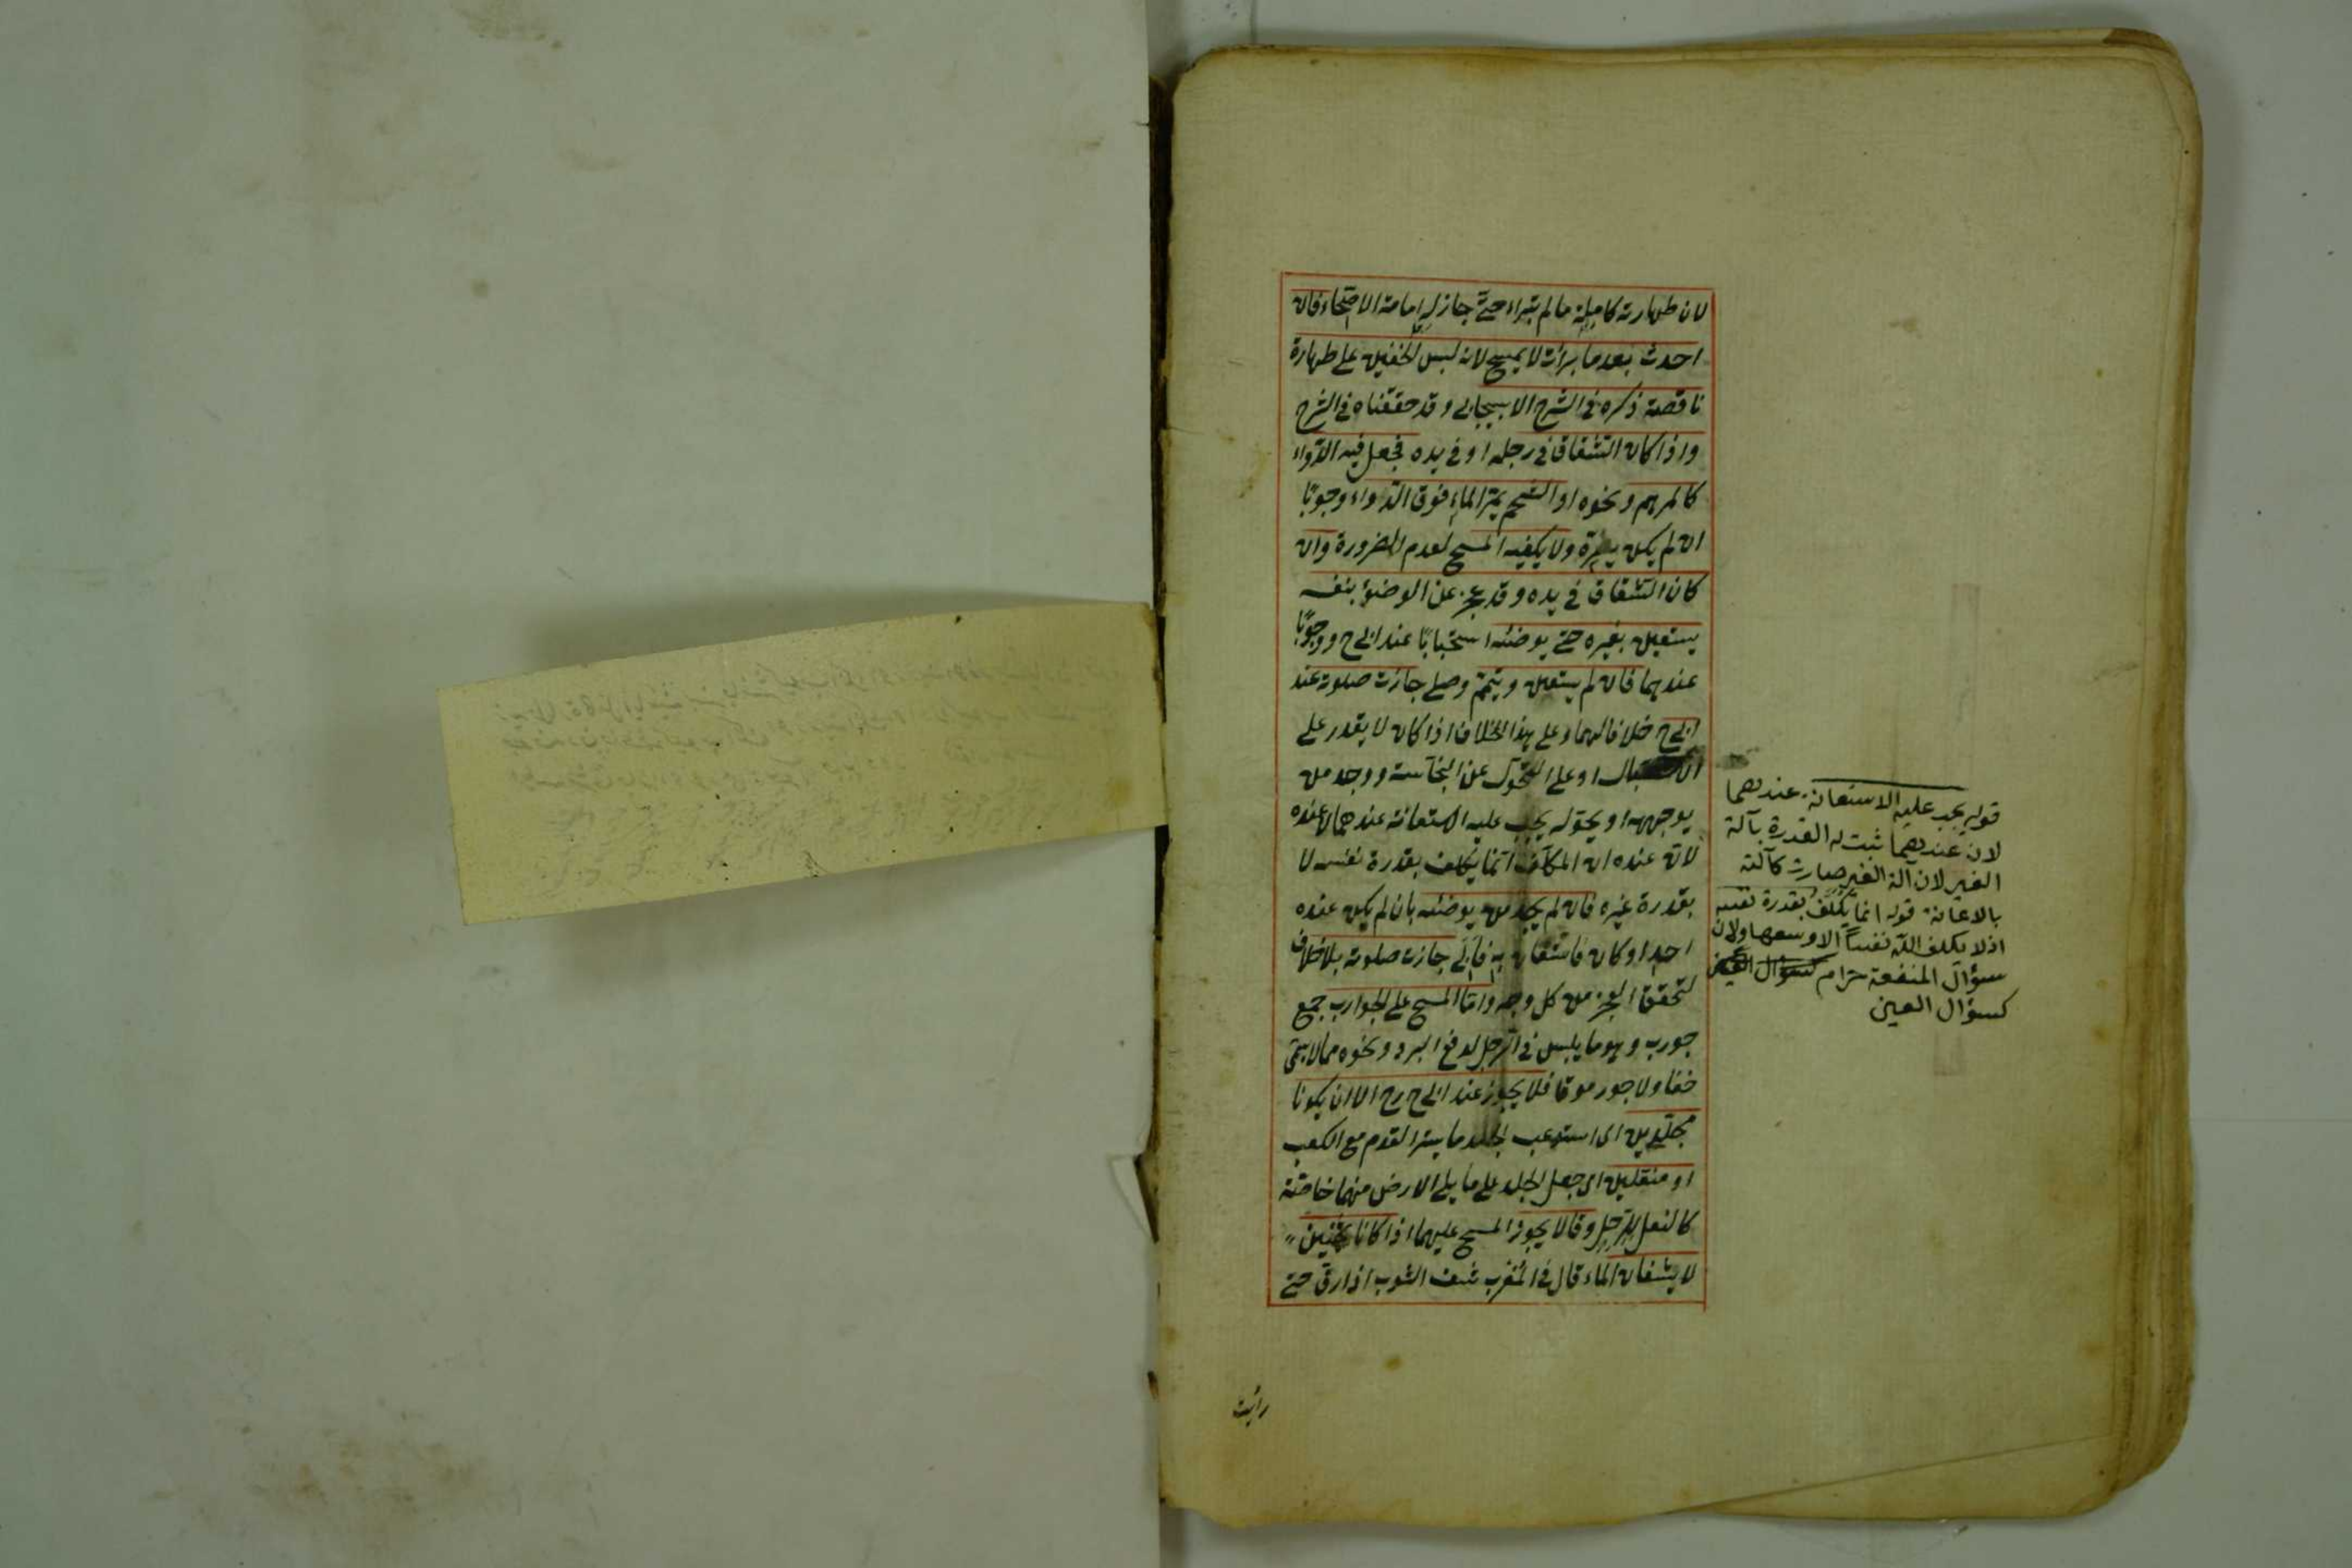 لان طهارته كاملة ما لم تبراء حتى جاز له امامة الاصحاء فان
احدث بعد ما برأت لا يمسح لانه لبس الخفين على طهارة
ناقصة ذكره فى الشرح الاسبيجابى وقد حققناه فى الشرح
واذا كان الشقاق فى رجله او فى يده فجعل فيه الدواء
كالمرهم ونحوه او الشحم يمر الماء فوق الدواء وجوبًا
ان لم يكن يضره ولا يكفيه المسح لعدم الضرورة وان
كان الشقاق فى يده وقد عجز عن الوضوء بنفسه
يستعين بغيره حتى يوضئه استحبابًا عند ابى ح ووجوبًا
عندهما فان لم يستعن وتيمم وصلى جازت صلوته عند
ابى ح خلافا لهما وعلى هذا الخلاف اذا كان لا يقدر على
الاستقبال او على التحول عن النجاسة ووجد من
يوجهه او يحوله يجب عليه الاستعانة عندهما لا عنده
لان عنده ان المكلف انما يكلف بقدرة نفسه لا
بقدرة غيره فان لم يجد من يوضئه بان لم يكن عنده
احد او كان فاستعان به فابى جازت صلوته بلا خلاف
لتحقق العجز من كل وجه واما المسح على الجوارب جمع
جورب وهو ما يلبس فى الرجل لدفع البرد ونحوه مما لا يسمى
خفا ولا جرموقا فلا يجوز عند ابى ح رح الا ان يكونا
مجلدين اى استوعب الجلد ما يستر القدم مع الكعب
او منعلين اى جعل الجلد على ما يلى الارض منهما خاصة
كالنعل للرجل وقالا يجوز المسح عليهما اذا كانا ثخينين
لا يشفان الماء قال فى المغرب شف الثوب اذا رق حتى
رأيت
قوله يجب عليه الاستعانة عندهما
لان عندهما ثبت له القدرة بآلة
الغير لان آلة الغير صارت كآلته
بالاعانة قوله انما يكلف بقدرة نفسه
اذ لا يكلف الله نفساً الا وسعها ولان
سؤال المنفعة حرام كسؤال العين
كسؤال العين